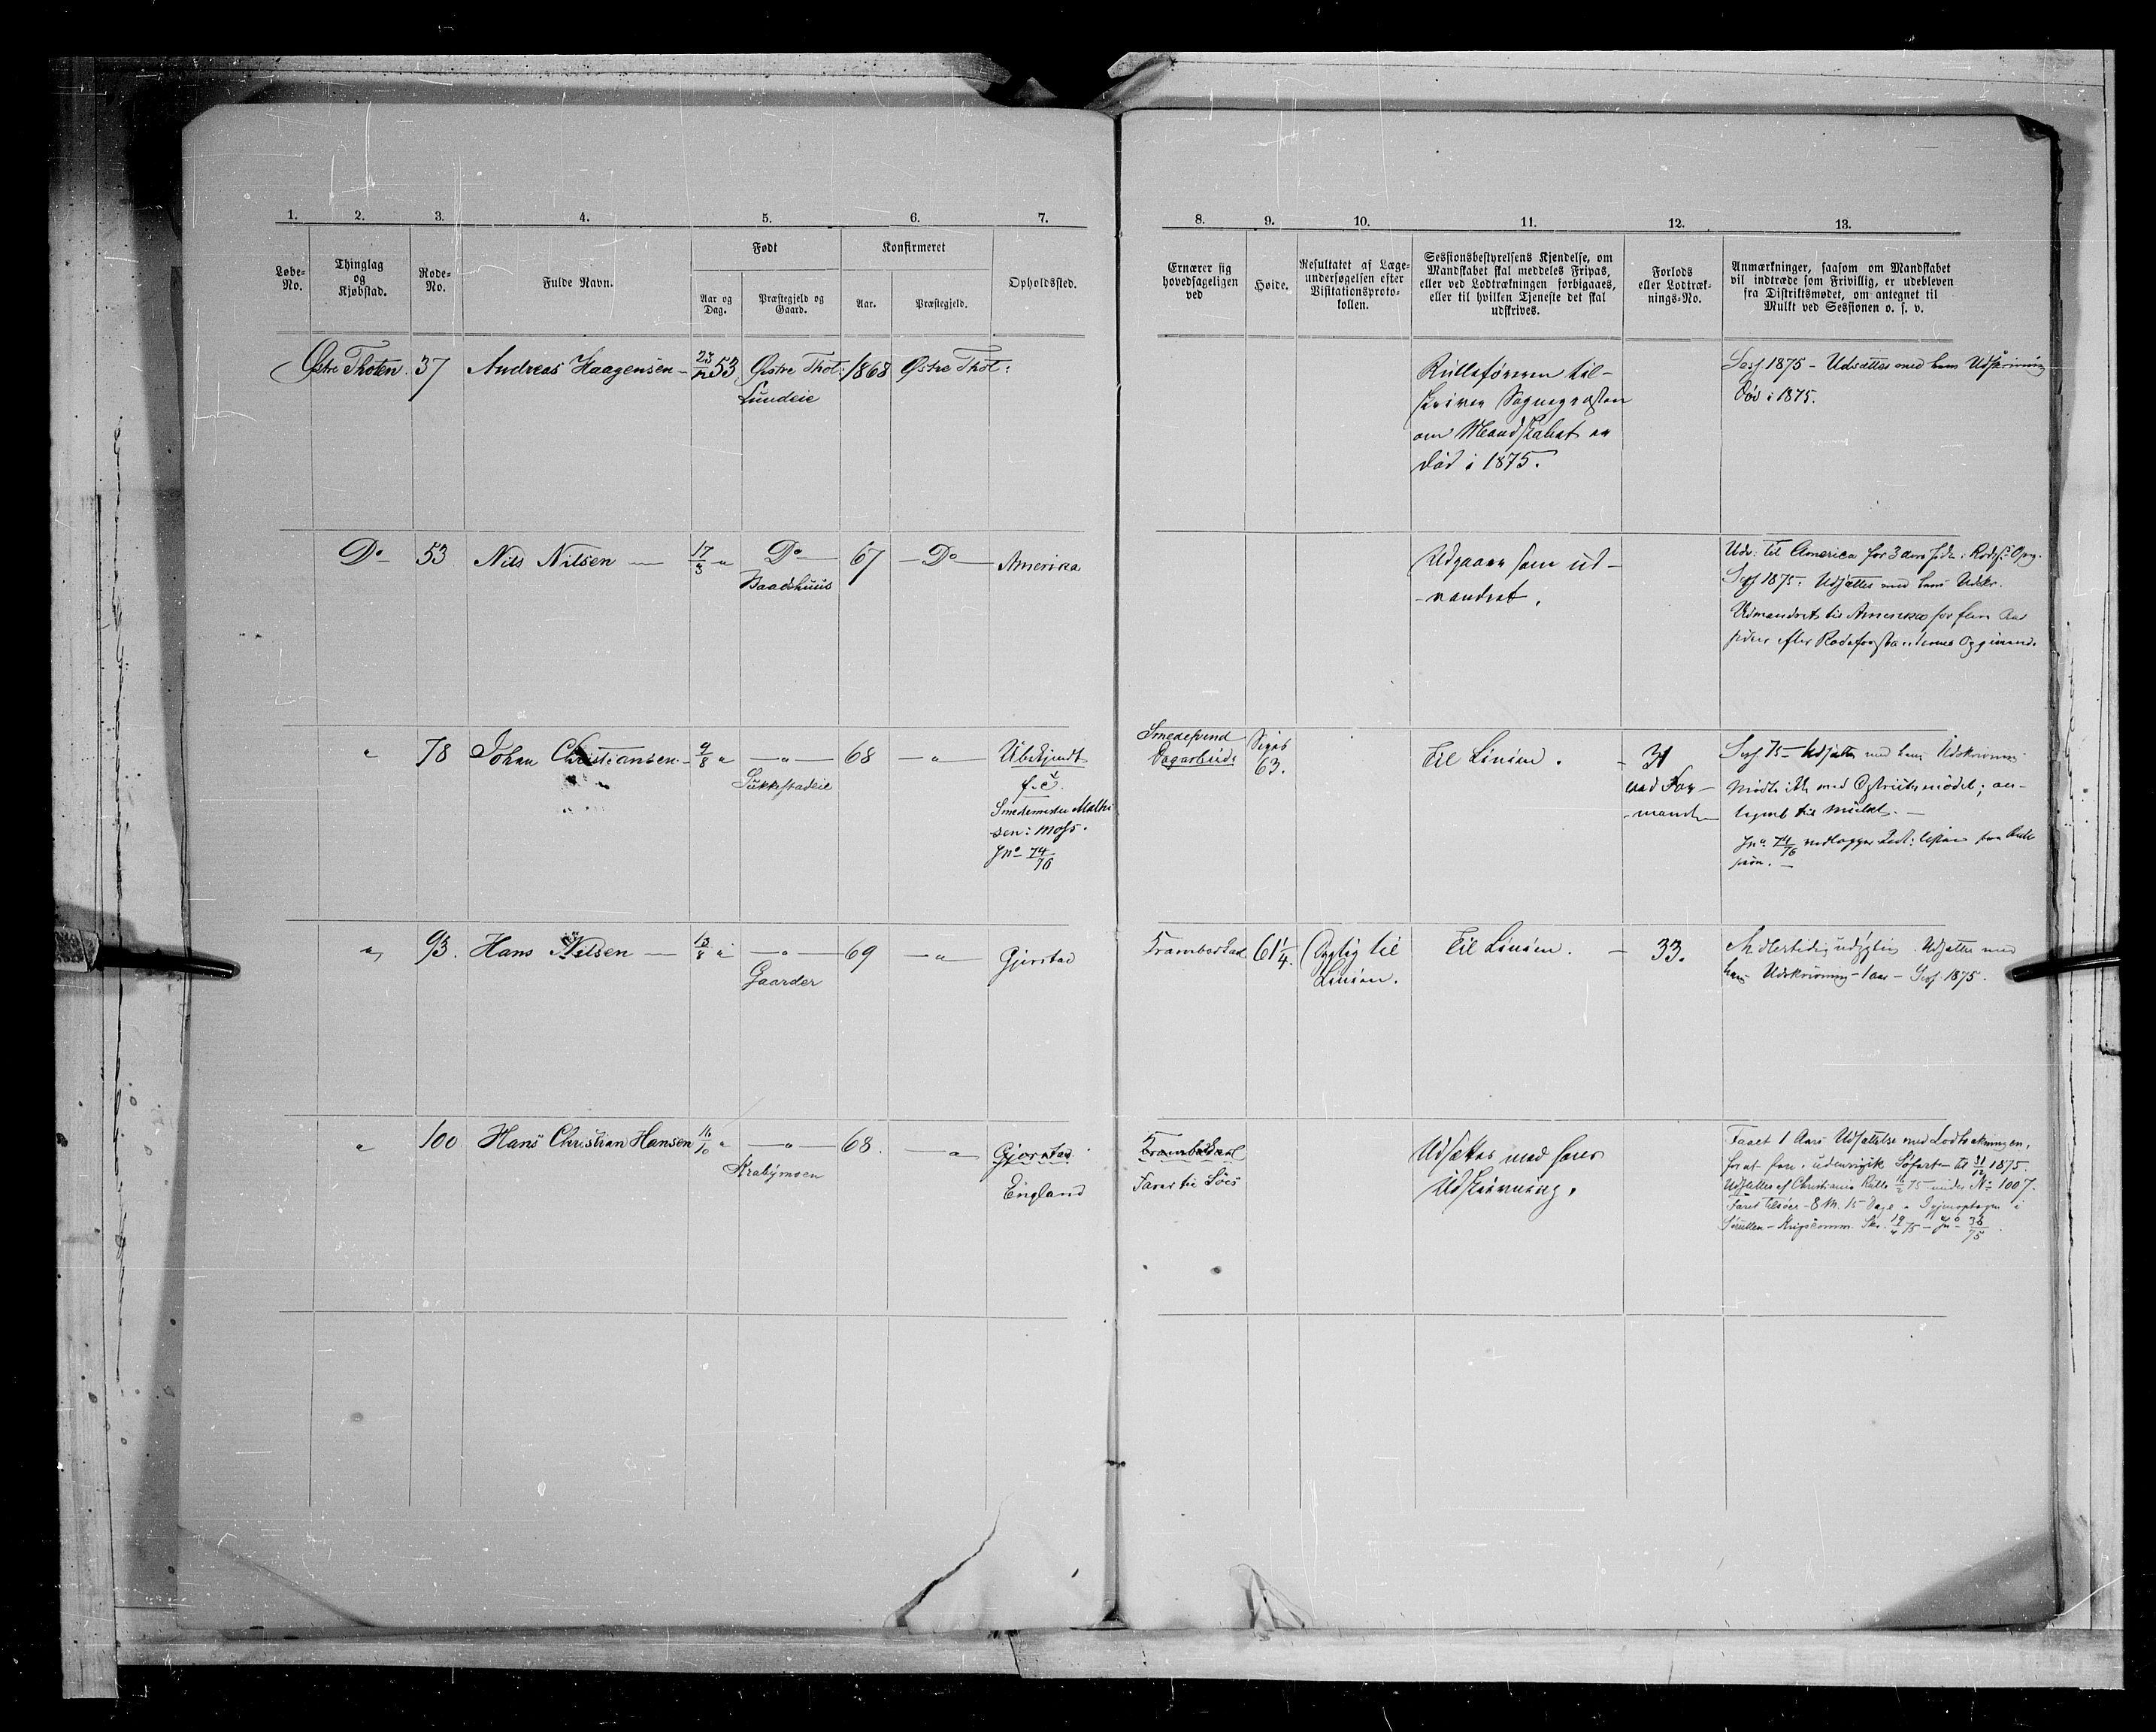 1. 2. 3. 4. 5. 6. 7.
Løbe-No.
Thinglag og Kjøbstad.
Rode-No.
Fulde Navn.
Født
Aar og Dag.
Præstegjeld og Gaard.
Konfirmeret
Aar.
Præstegjeld.
Opholdssted.
8. 9. 10. 11. 12. 13.
Ernærer sig hovedsageligen ved
Høide.
Resultatet af Læge-undersøgelsen efter Visitationsproto-kollen.
Sessionsbestyrelsens Kjendelse, om Mandskabet skal meddeles Fripas, eller ved Lodtrækningen forbigaaes, eller til hvilken Tjeneste det skal udskrives.
Forlods eller Lodtræk-nings-No.
Anmærkninger, saasom om Mandskabet vil indtræde som Frivillig, er udebleven fra Distriktsmødet, om antegnet til Mulkt ved Sessionen o. s. v.
Østre Thoten. 37 Andreas Haagensen 53 Østre Thot: 1868 Østre Thot:
Lundeie
Rulleføreren til-
skriver
om Mandskabet er
død i 1875.
Sess. 1875 - Udsættes med hans Udskrivning
Død i 1875.
Do 53 Nils Nilsen 17/3 " Do 67 Do Amerika
Baadshuus
Udgaaer som ud-
-vandret.
Udv: til America for 3 aar siden Rodef: Opg.
Sess 1875. Udsættes med hans Udskr.
Udvandret til Amerika for fem Aar
siden efter Rodeforstandernes Opgivende
" 78 Johan Christiansen 9/8 " " 68 " Ubekjendt
Sukkestadeie
Smedemester Mathi
sen: Moss.
Jno 74/76
Smedesvend
Dagarbeide
63.
Til Linien. 31
ved For-
-mand
Sess 75 - Udsættes med hans Udskrivning
Mødte ikke med Distriktsmødet; an-
tegnet til Mulkt.
Jno 74/76 vedlægger
" 93. Hans Nilsen 13/8 " " 69 " Gjerstad
Gaarder
61 1/4. Dygtig til
Linien.
Til Linien. 33.
Midlertidig udygtig Udsættes med
hans Udskrivning 1 aar - Sess. 1875.
" 100 Hans Christian Hansen 16/10 " " 68. " Gjerstad
Krabymoen
England
Farer til Søes
Udsættes med hans
Udskrivning.
Faaet 1 Aars Udsættelse med Lodtrækningen,
for at fare i udenrigsk Søfart til 31/12 1875.
Udskattes af Christiania Rulle 16/2 75 under No 1007.
Faret tilsøes 8 M. 15 Dage
Sørullen - Krigscomm. Skr. 19/4 75 - Jno 38/75.